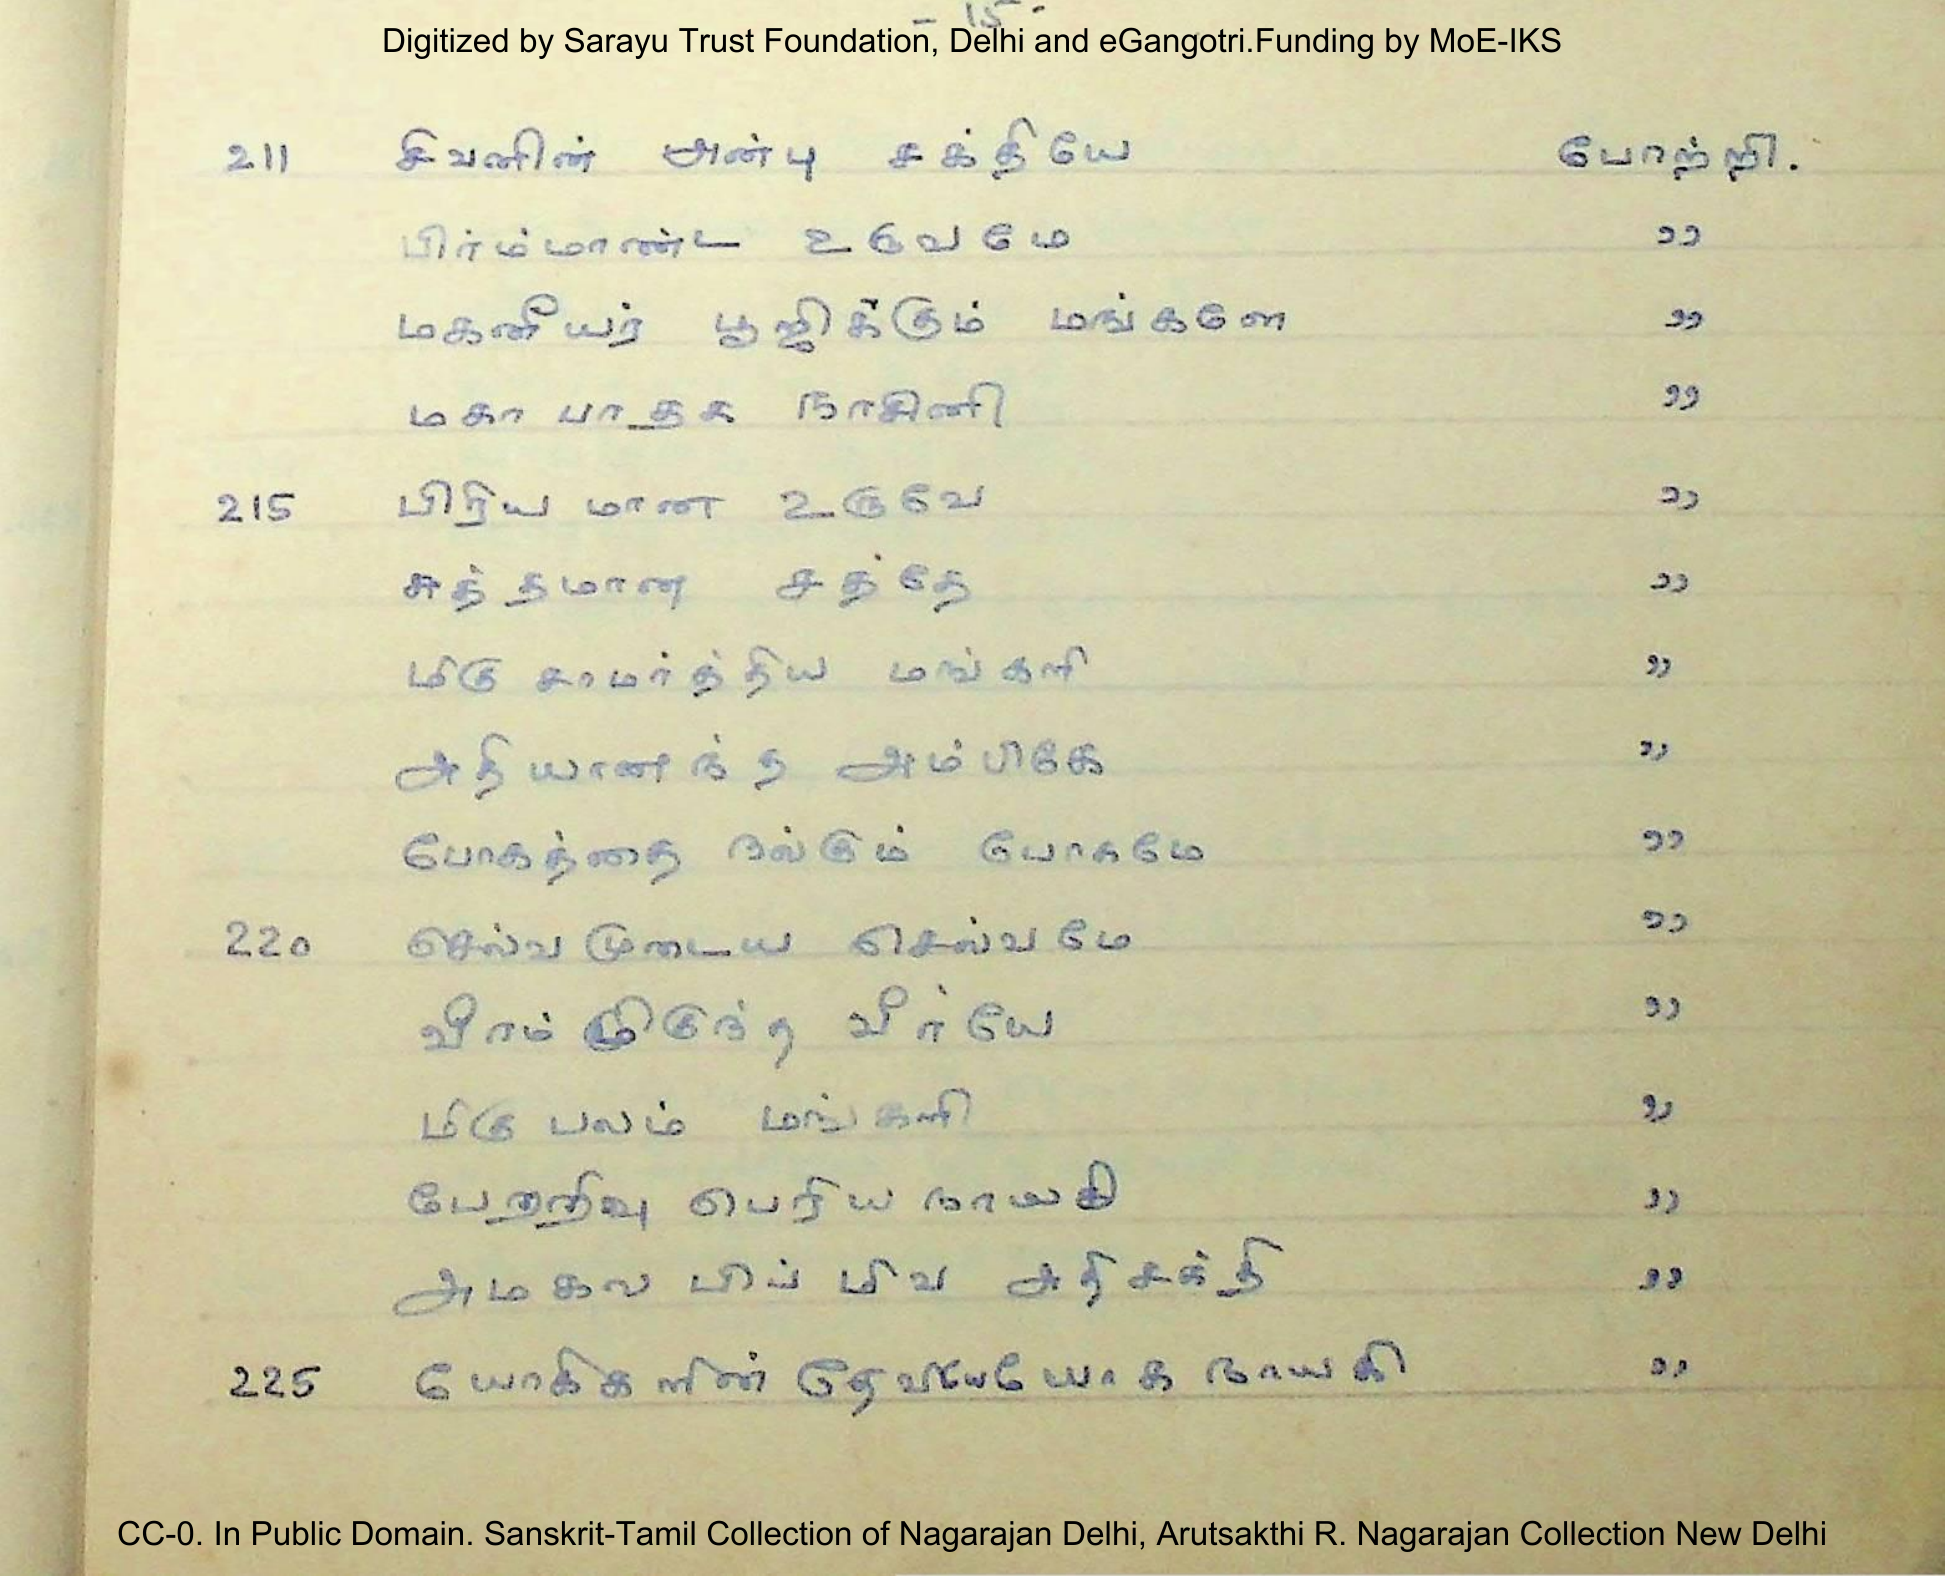 - 15 -
Digitized by Sarayu Trust Foundation, Delhi and eGangotri.Funding by MoE-IKS
211 சிவனின் அன்பு சக்தியே போற்றி.
பிர்ம்மாண்ட உருவமே ,,
மகனீயர் பூஜிக்கும் மங்களே ,,
மகா பாதக நாசினி ,,
215 பிரிய மான உருவே ,,
சுத்தமான சத்தே ,,
மிகு சாமர்த்திய மங்களி ,,
அதியானந்த அம்பிகே ,,
போகத்தை நல்கும் யோகமே ,,
220 செல்வ முடைய செல்வமே ,,
வீரம் மிகுந்த வீர்யே ,,
மிகு பலம் மங்களி ,,
பேறறிவு பெரிய நாயகி ,,
அதிசக்தி ,,
225 யோகிகளின் யோக நாயகி ,,
CC-0. In Public Domain. Sanskrit-Tamil Collection of Nagarajan Delhi, Arutsakthi R. Nagarajan Collection New Delhi